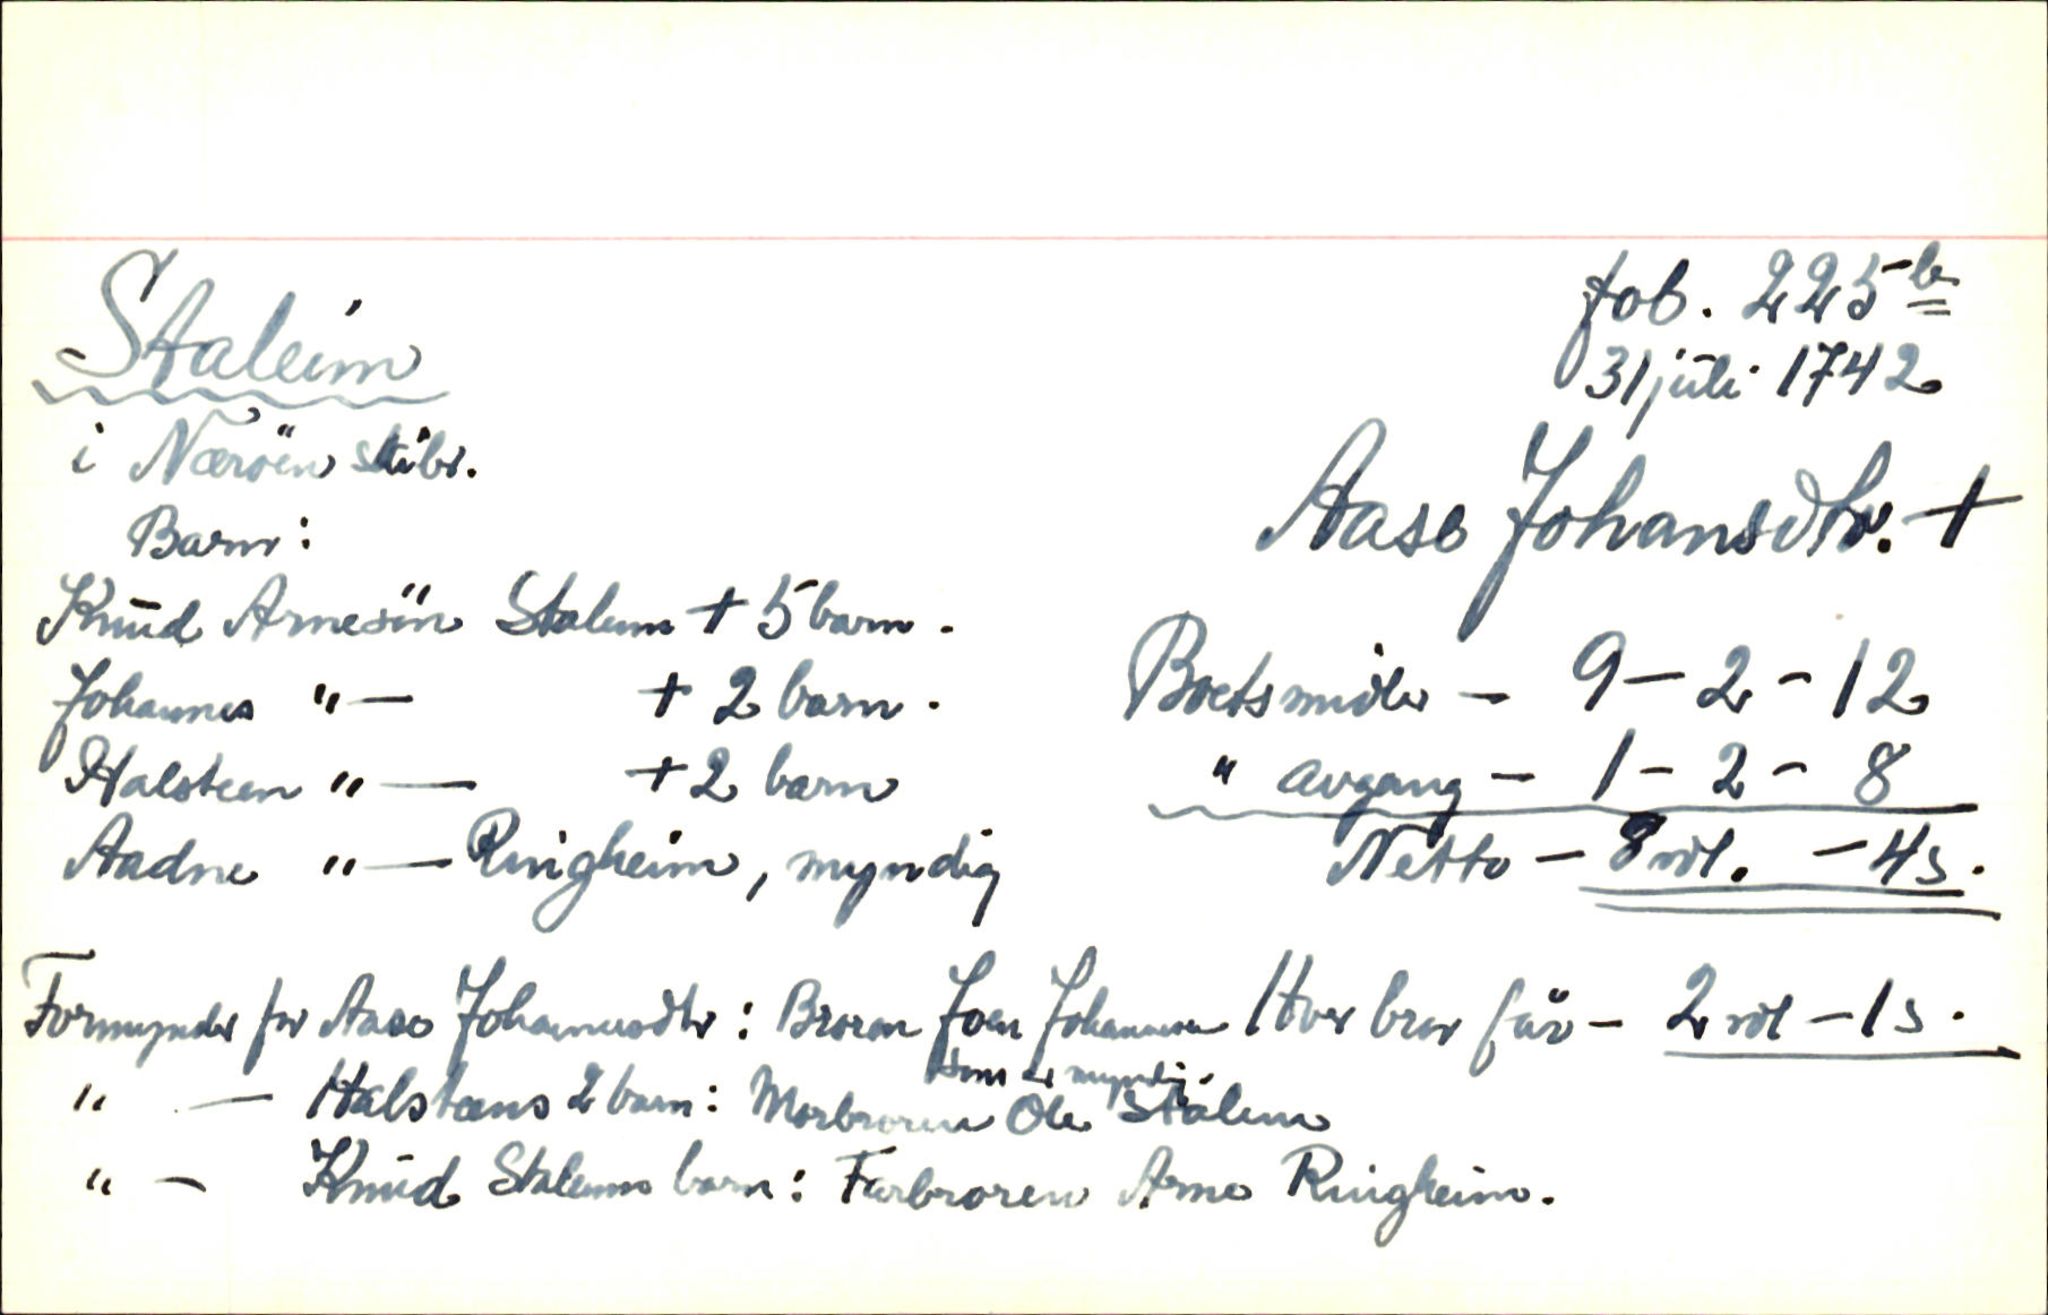 Staleim
i Nærøen skibr.
fol. 225 b
31 juli 1742
Aase Johansdtr. +
Barn:
Knud Arnesön Staleim + 5 barn.
Johannes " — + 2 barn.
Halsteen " — + 2 barn
Aadne " — Ringheim, myndig
Boets midler — 9 — 2 — 12
" avgang — 1 — 2 — 8
Netto — 8 rdl. — 4 s.
Formynder for Aase Johannesdtr: Broren Joen Johannesen
som er myndig.
Hver bror får — 2 rdl — 1 s.
" — Halsteens 2 barn: Morbroren Ole Stålem
" — Knud Staleims barn: Farbroren Arne Ringheim.